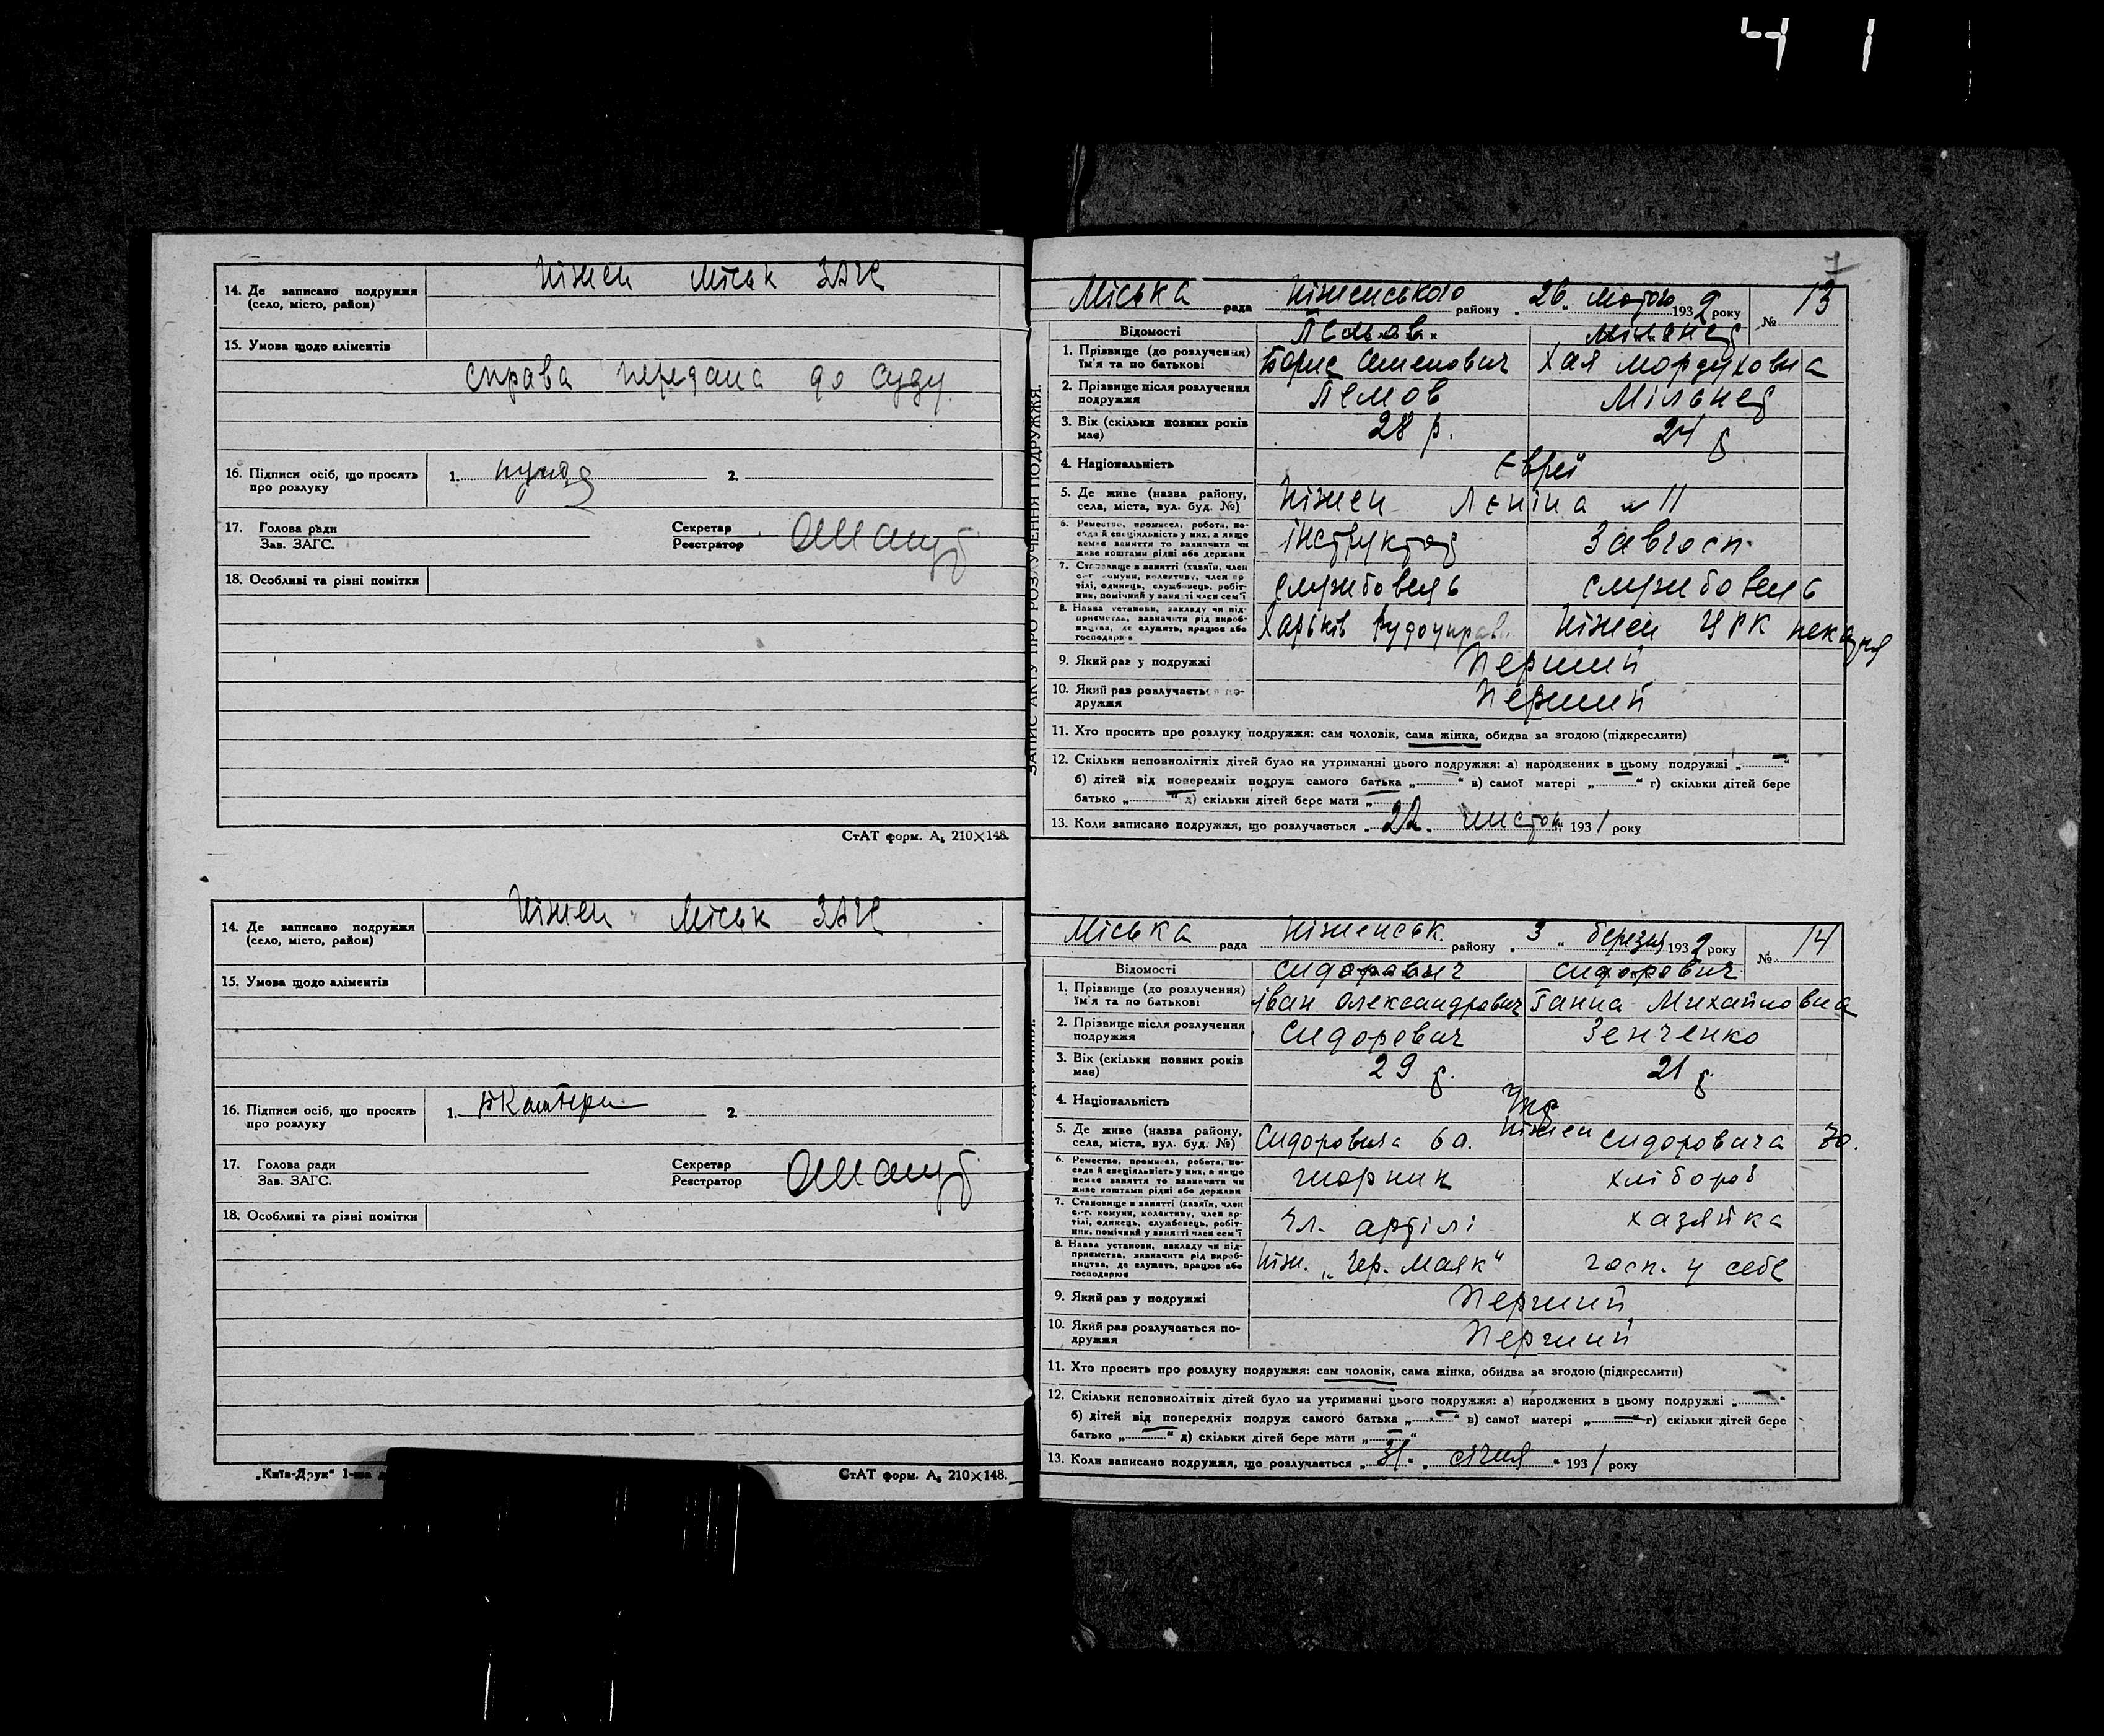 4 1
14. Де записано подружжя
(село, місто, район)
Ніжен Міськ ЗАГС
15. Умова щодо аліментів
справа передана до суду.
16. Підписи осіб, що просять
про розлуку
1. 2.
17. Голова ради
Зав. ЗАГС.
Секретар
Реєстратор
18. Особливі та різні помітки
СтАТ форм. А₅ 210×148.
14. Де записано подружжя
(село, місто, район)
Ніжен Міськ ЗАГС
15. Умова щодо аліментів
16. Підписи осіб, що просять
про розлуку
1. 2.
17. Голова ради
Зав. ЗАГС.
Секретар
Реєстратор
18. Особливі та різні помітки
„Київ-Друк" 1-ша
СтАТ форм. А₅ 210×148.
7
ЗАПИС АКТУ ПРО РОЗЛУЧЕННЯ ПОДРУЖЖЯ.
Міська рада Ніженського району „26" лютого 1932 року № 13
Відомості
1. Прізвище (до розлучення)
Ім'я та по батькові
Лємов Мільнер
Борис Семенович Хая Мордуховна
2. Прізвище після розлучення
подружжя
Лємов Мільнер
3. Вік (скільки повних років
має)
28 р. 24 р
4. Національність
Євреї
5. Де живе (назва району,
села, міста, вул. буд. №)
Ніжен Леніна № 11
6. Ремество, промисел, робота, по-
сада й спеціяльність у них, а якщо
немає заняття то зазначити чи
живе коштами рідні або держави
інструктор Завгосп.
7. Становище в занятті (хазяїн, член
с.-г. комуни, колективу, член ар-
тілі, одинець, службовець, робіт-
ник, помічний у занятті член сем'ї
службовець службовець
8. Назва установи, закладу чи під-
приємства, зазначити рід вироб-
ництва, де служить, працює або
господарює
Харьків Рудоуправ. Ніжен ЦРК пекарня
9. Який раз у подружжі
Перший
10. Який раз розлучається по-
дружжя
Перший
11. Хто просить про розлуку подружжя: сам чоловік, сама жінка, обидва за згодою (підкреслити)
12. Скільки неповнолітніх дітей було на утриманні цього подружжя: а) народжених в цьому подружжі „—"
б) дітей від попередніх подруж самого батька „ " в) самої матері „ " г) скільки дітей бере
батько „ " д) скільки дітей бере мати „
13. Коли записано подружжя, що розлучається „22" листоп. 1931 року
Міська рада Ніженськ. району „3" березня 1932 року № 14
Відомості
1. Прізвище (до розлучення)
Ім'я та по батькові
Сидорович Сидорович
Іван Олександрович Ганна Михайловна
2. Прізвище після розлучення
подружжя
Сидорович Зенченко
3. Вік (скільки повних років
має)
29 р. 21 р.
4. Національність
Укр
5. Де живе (назва району,
села, міста, вул. буд. №)
Сидоровича 6а. Ніжен Сидоровича 30.
6. Ремество, промисел, робота, по-
сада й спеціяльність у них, а якщо
немає заняття то зазначити чи
живе коштами рідні або держави
шорник хлібороб
7. Становище в занятті (хазяїн, член
с.-г. комуни, колективу, член ар-
тілі, одинець, службовець, робіт-
ник, помічний у занятті член сем'ї
чл. артілі хазяйка
8. Назва установи, закладу чи під-
приємства, зазначити рід вироб-
ництва, де служить, працює або
господарює
Ніж. „Чер. Маяк" госп. у себе
9. Який раз у подружжі
Перший
10. Який раз розлучається по-
дружжя
Перший
11. Хто просить про розлуку подружжя: сам чоловік, сама жінка, обидва за згодою (підкреслити)
12. Скільки неповнолітніх дітей було на утриманні цього подружжя: а) народжених в цьому подружжі „—"
б) дітей від попередніх подруж самого батька „—" в) самої матері „—" г) скільки дітей бере
батько „—" д) скільки дітей бере мати „—"
13. Коли записано подружжя, що розлучається „31" січня 1931 року